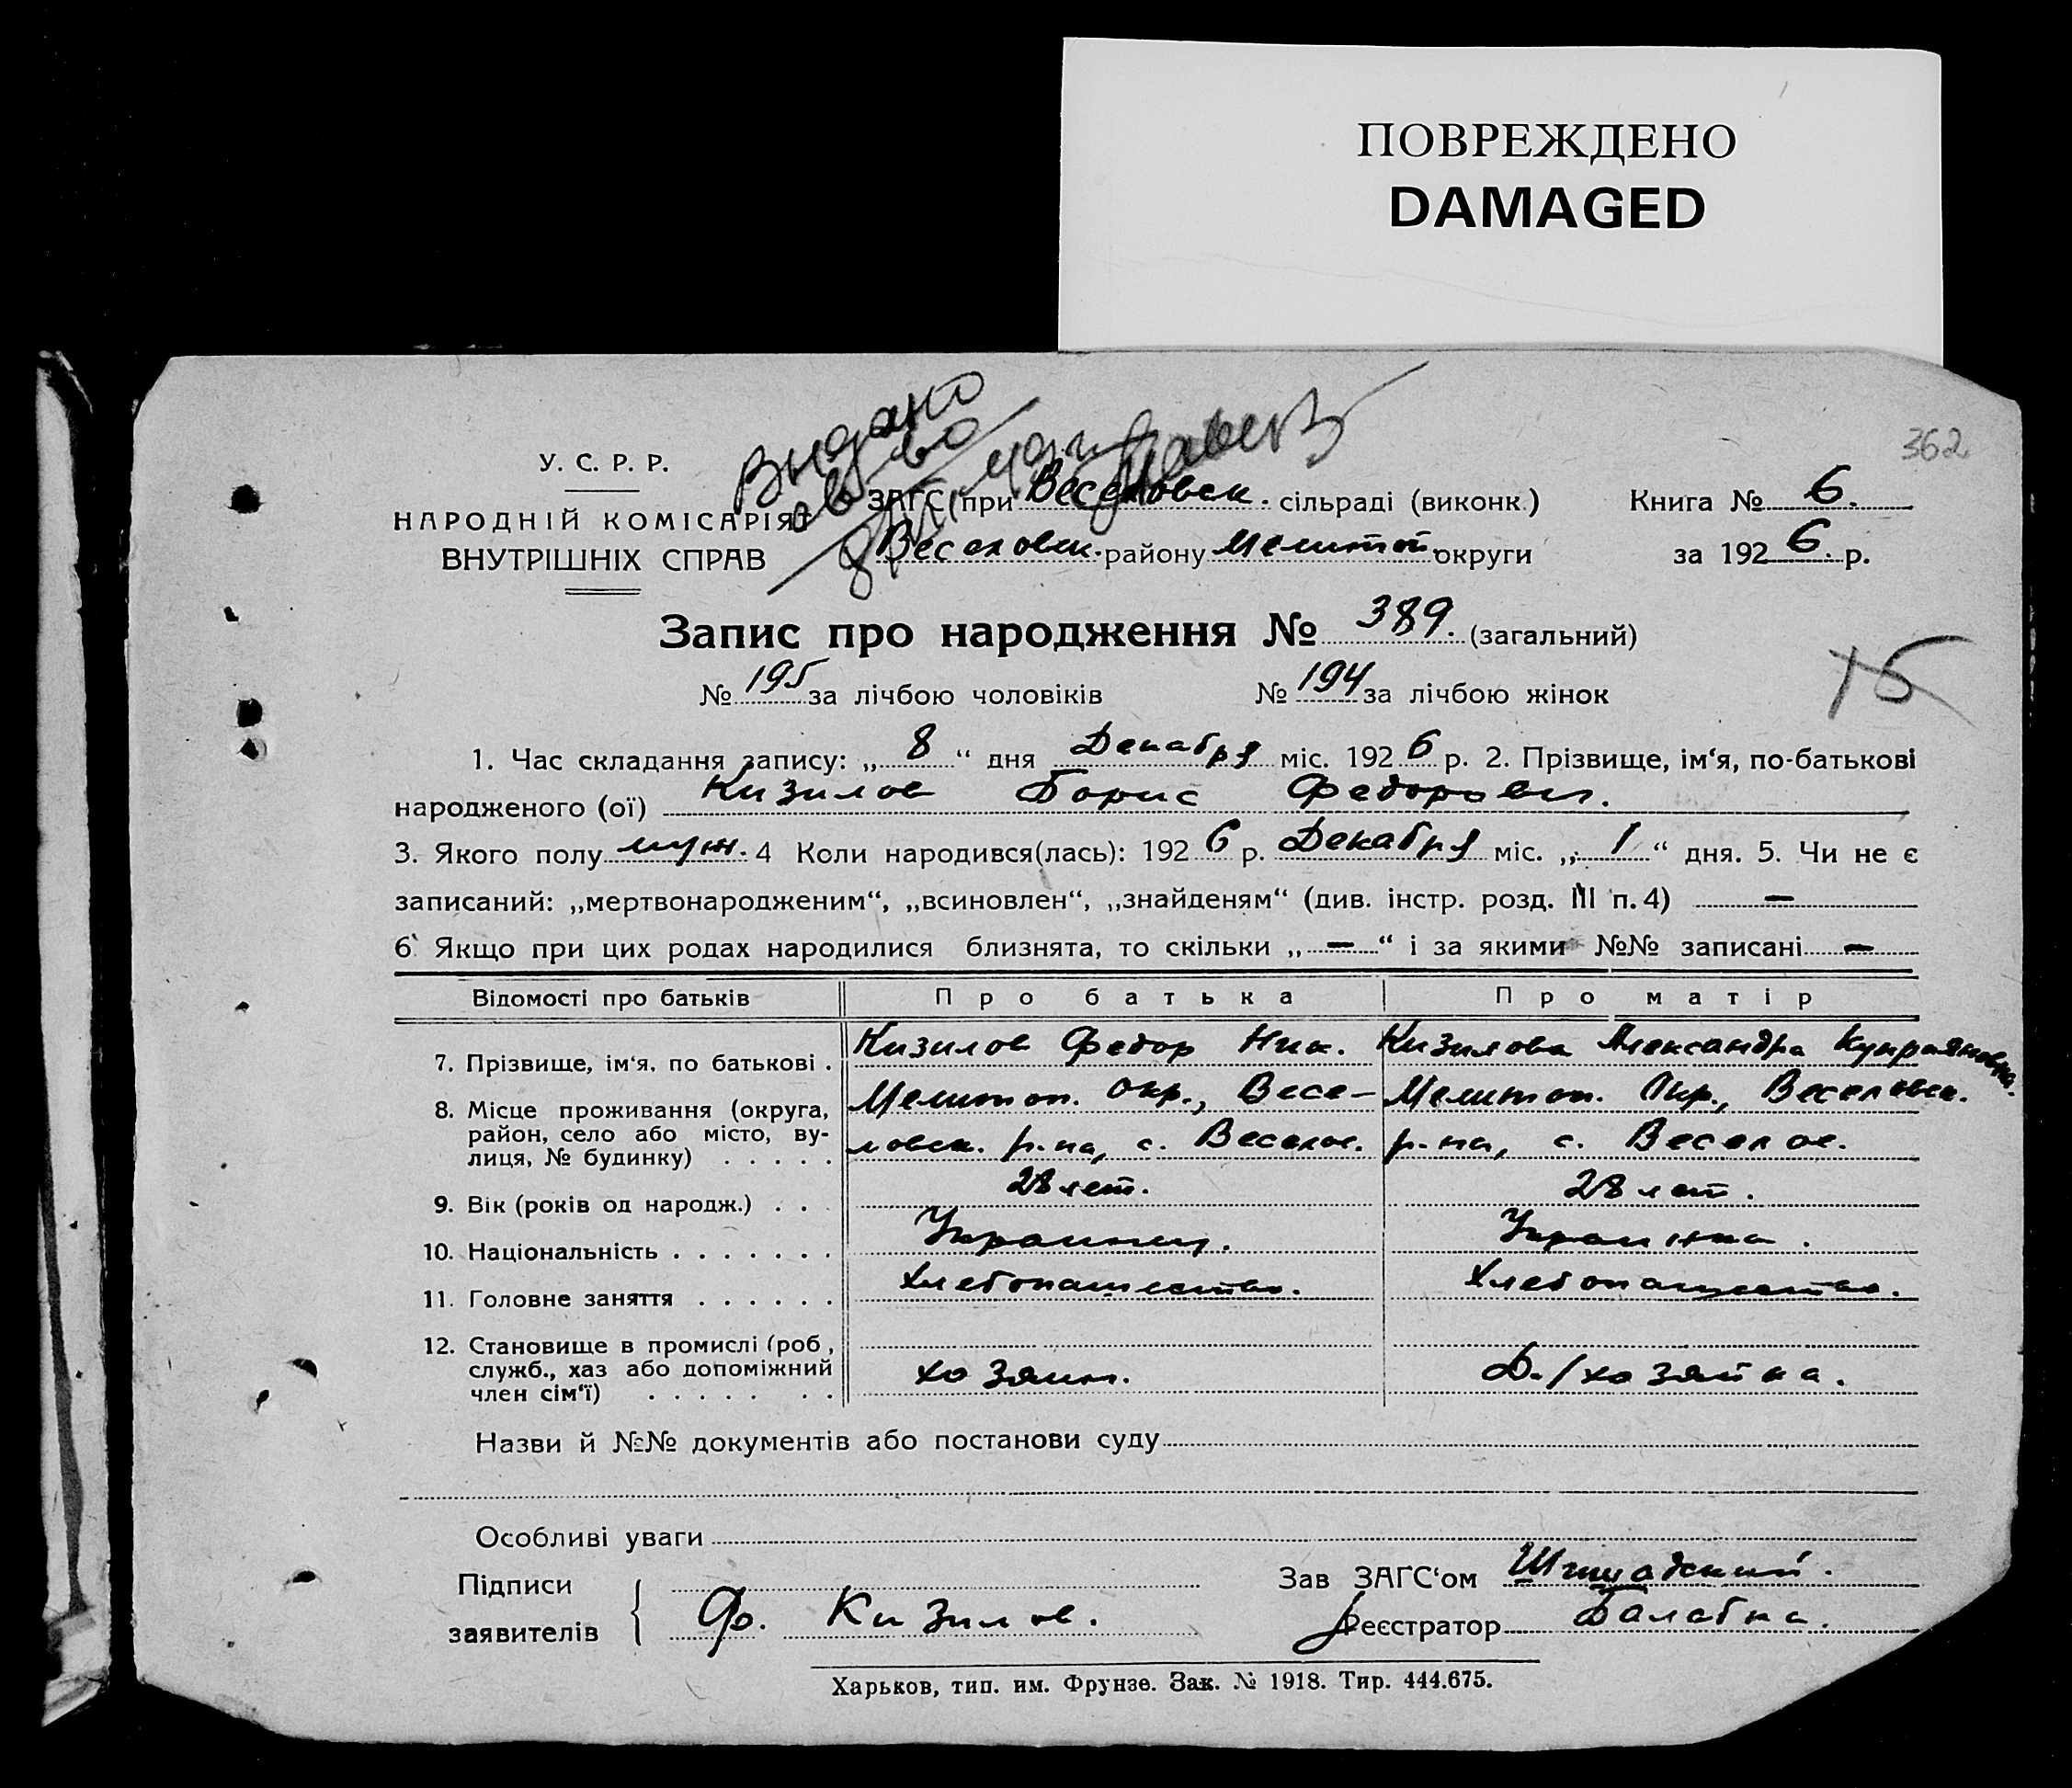 ПОВРЕЖДЕНО
DAMAGED
362
Видано
св-во
У. С. Р. Р.
НАРОДНІЙ КОМІСАРІЯТ
ВНУТРІШНІХ СПРАВ
ЗАГС при Веселовск. сільраді (виконк.)
Веселовск. району Мелитоп. округи
Книга № 6.
за 1926. р.
Запис про народження № 389. (загальний)
№ 195 за лічбою чоловіків № 194 за лічбою жінок
15
1. Час складання запису: „8“ дня Декабря міс. 1926 р. 2. Прізвище, ім‘я, по-батькові
народженого (ої) Кизилов Борис Федорович.
3. Якого полу муж. 4 Коли народився(лась): 1926 р. Декабря міс. „1“ дня. 5. Чи не є
записаний: „мертвонародженим“, „всиновлен“, „знайденям“ (див. інстр. розд. III п. 4) —
6. Якщо при цих родах народилися близнята, то скільки „—“ і за якими №№ записані —
Відомості про батьків Про батька Про матір
7. Прізвище, ім‘я, по батькові . Кизилов Федор Ник. Кизилова Александра Куприяновна.
8. Місце проживання (округа, Мелитоп. Окр., Весе- Мелитоп. Окр., Веселовск.
район, село або місто, ву-
лиця, № будинку) . . . . . ловск. р-на, с. Веселое. р-на, с. Веселое.
9. Вік (років од народж.) . . . 28 лет. 28 лет.
10. Національність . . . . . . . Украинец. Украинка.
11. Головне заняття . . . . . . Хлебопашество. Хлебопашество.
12. Становище в промислі (роб.,
служб., хаз або допоміжний хозяин. Д./хозяйка.
член сім‘ї) . . . . . . .
Назви й №№ документів або постанови суду
Особливі уваги
Підписи
заявителів Ф. Кизилов.
Зав ЗАГС‘ом
Реєстратор Балабка.
Харьков, тип. им. Фрунзе. Зак. № 1918. Тир. 444.675.